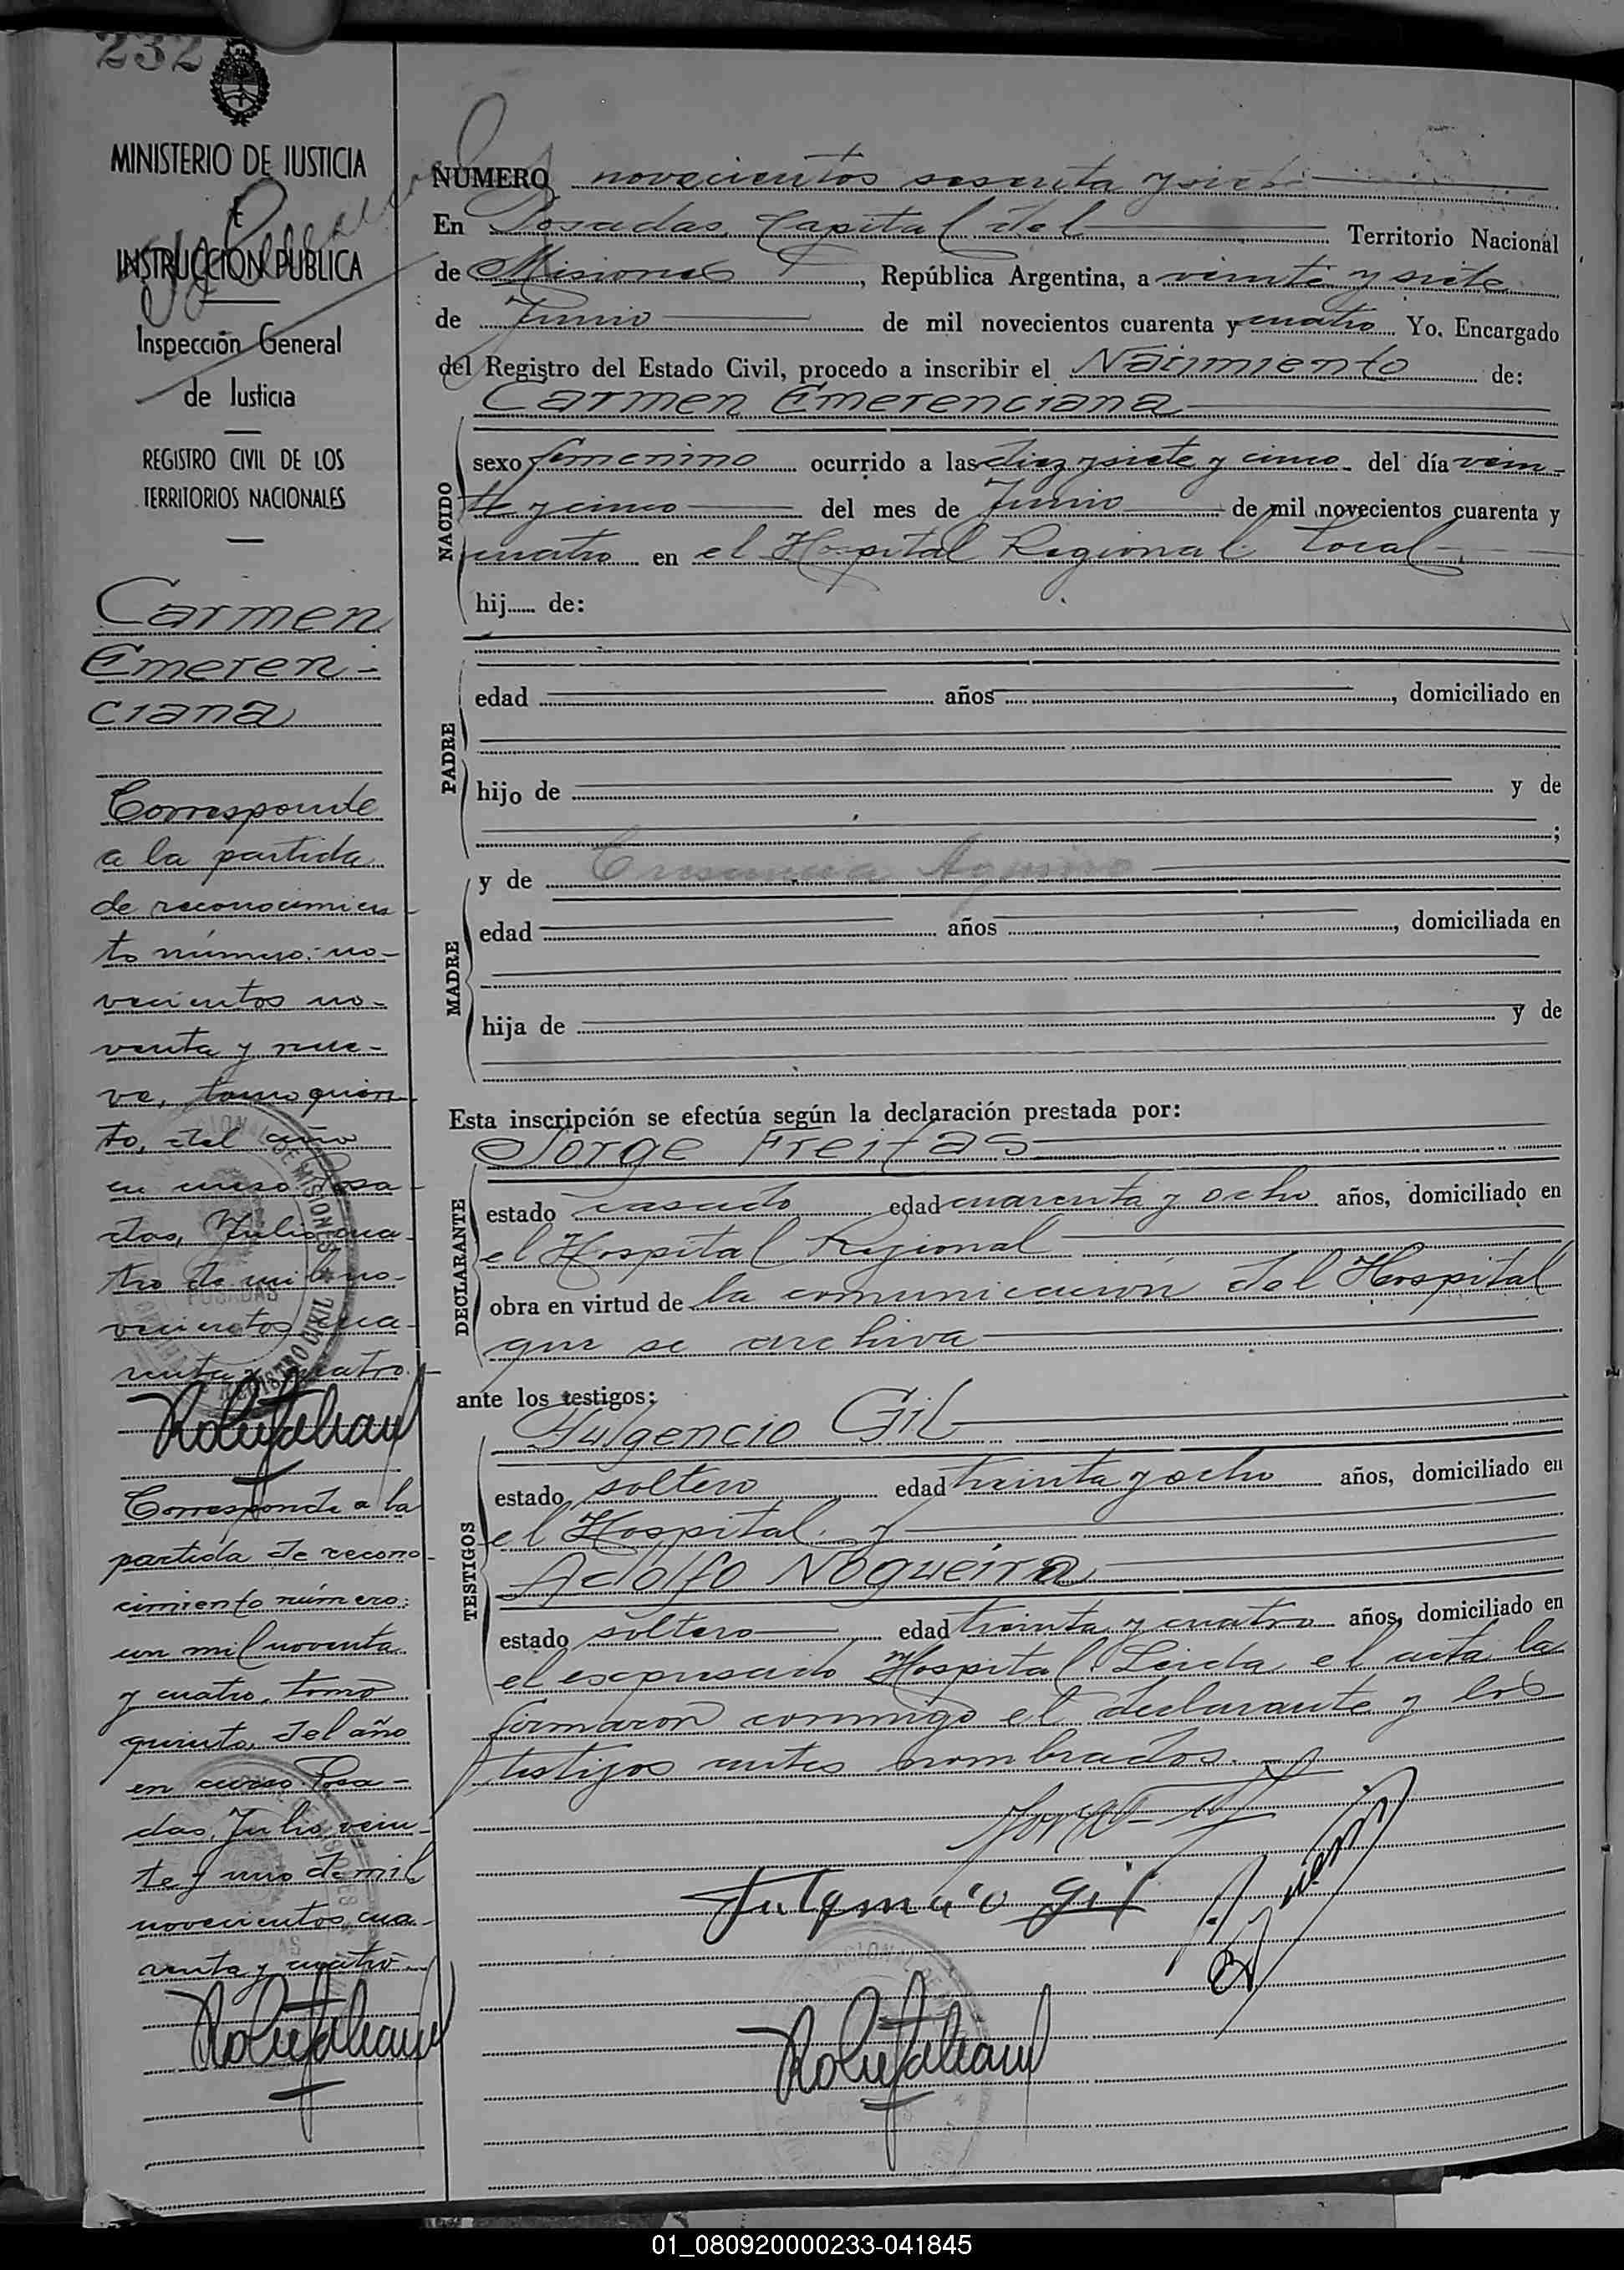 232
MINISTERIO DE JUSTICIA
E
INSTRUCCION PUBLICA
Inspección General
de Justicia
REGISTRO CIVIL DE LOS
TERRITORIOS NACIONALES
Carmen
Emeren-
ciana
Corresponde
a la partida
de reconocimien-
to número: no-
vecientos no-
venta y nue-
ve, tomo quin-
to, del año
en curso. Posa-
das, Julio cua-
tro de mil no-
vecientos cua-
renta y cuatro.
Corresponde a la
partida de recono-
cimiento número:
un mil noventa
y cuatro, tomo
quinto, del año
en curso. Posa-
das, Julio vein-
te y uno de mil
novecientos cua-
renta y cuatro
NUMERO novecientos sesenta y siete
En Posadas, Capital del Territorio Nacional
de Misiones, República Argentina, a veinte y siete
de Junio de mil novecientos cuarenta y cuatro Yo. Encargado
del Registro del Estado Civil, procedo a inscribir el Nacimiento de:
Carmen Emerenciana
NACIDO
sexo femenino ocurrido a las diez y siete y cinco del día vein-
te y cinco del mes de Junio de mil novecientos cuarenta y
cuatro en el Hospital Regional local
hij...... de:
PADRE
edad años, domiciliado en
hijo de y de
;
MADRE
y de Aquino
edad años, domiciliada en
hija de y de
Esta inscripción se efectúa según la declaración prestada por:
Jorge Freitas
DECLARANTE
estado casado edad cuarenta y ocho años, domiciliado en
el Hospital Regional
obra en virtud de la comunicación del Hospital
que se archiva
ante los testigos:
Fulgencio Gil
TESTIGOS
estado soltero edad treinta y ocho años, domiciliado en
el Hospital y
Adolfo Nogueira
estado soltero edad treinta y cuatro años, domiciliado en
el expresado Hospital. Leida el acta la
firmaron conmigo el declarante y los
testigos antes nombrados.
Fulgencio Gil
01_080920000233-041845